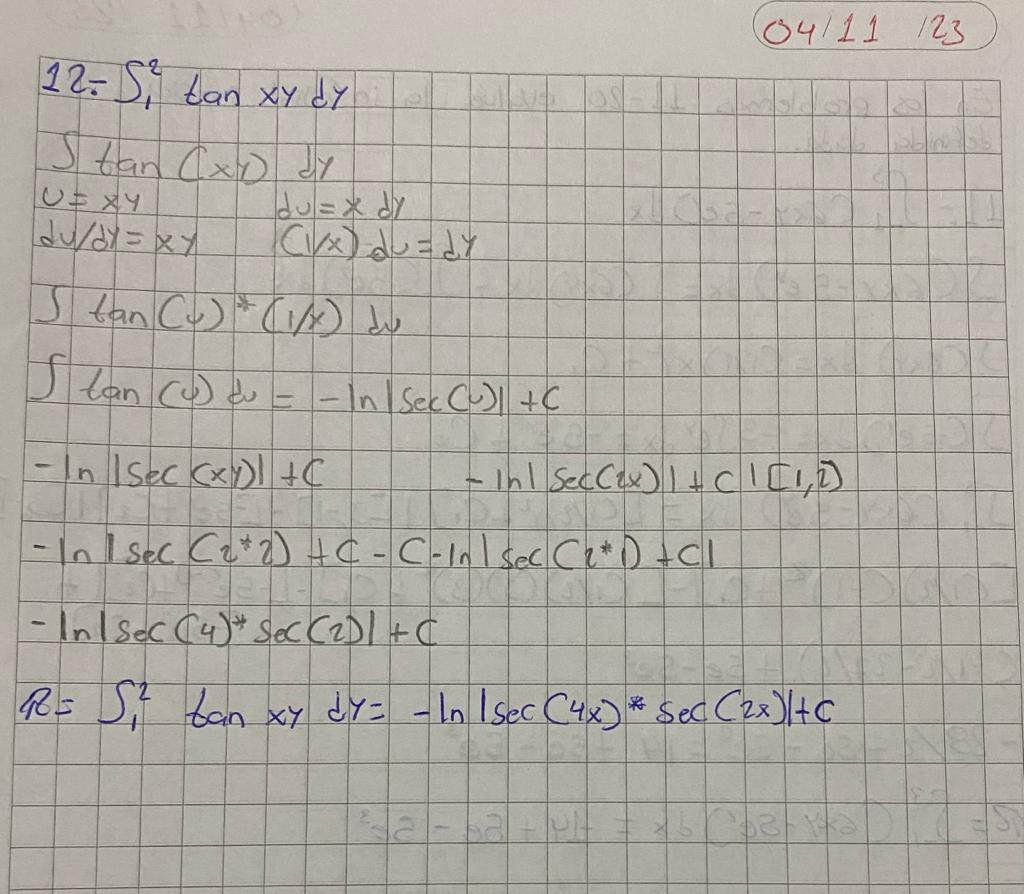 04/11/23
12.- ∫₁² tan xy dy
∫ tan (xy) dy
u = xy du = x dy
du/dy = xy (1/x) du = dy
∫ tan (u) * (1/x) du
∫ tan (u) du = -ln|sec(u)| + C
-ln |sec (xy)| + C -ln| sec(2x)| + C | [1,2]
-ln | sec (2*2) + C - C - ln | sec (2*1) + C|
-ln|sec (4)* sec(2)| + C
R= ∫₁² tan xy dy = -ln |sec(4x)* sec(2x)|+C